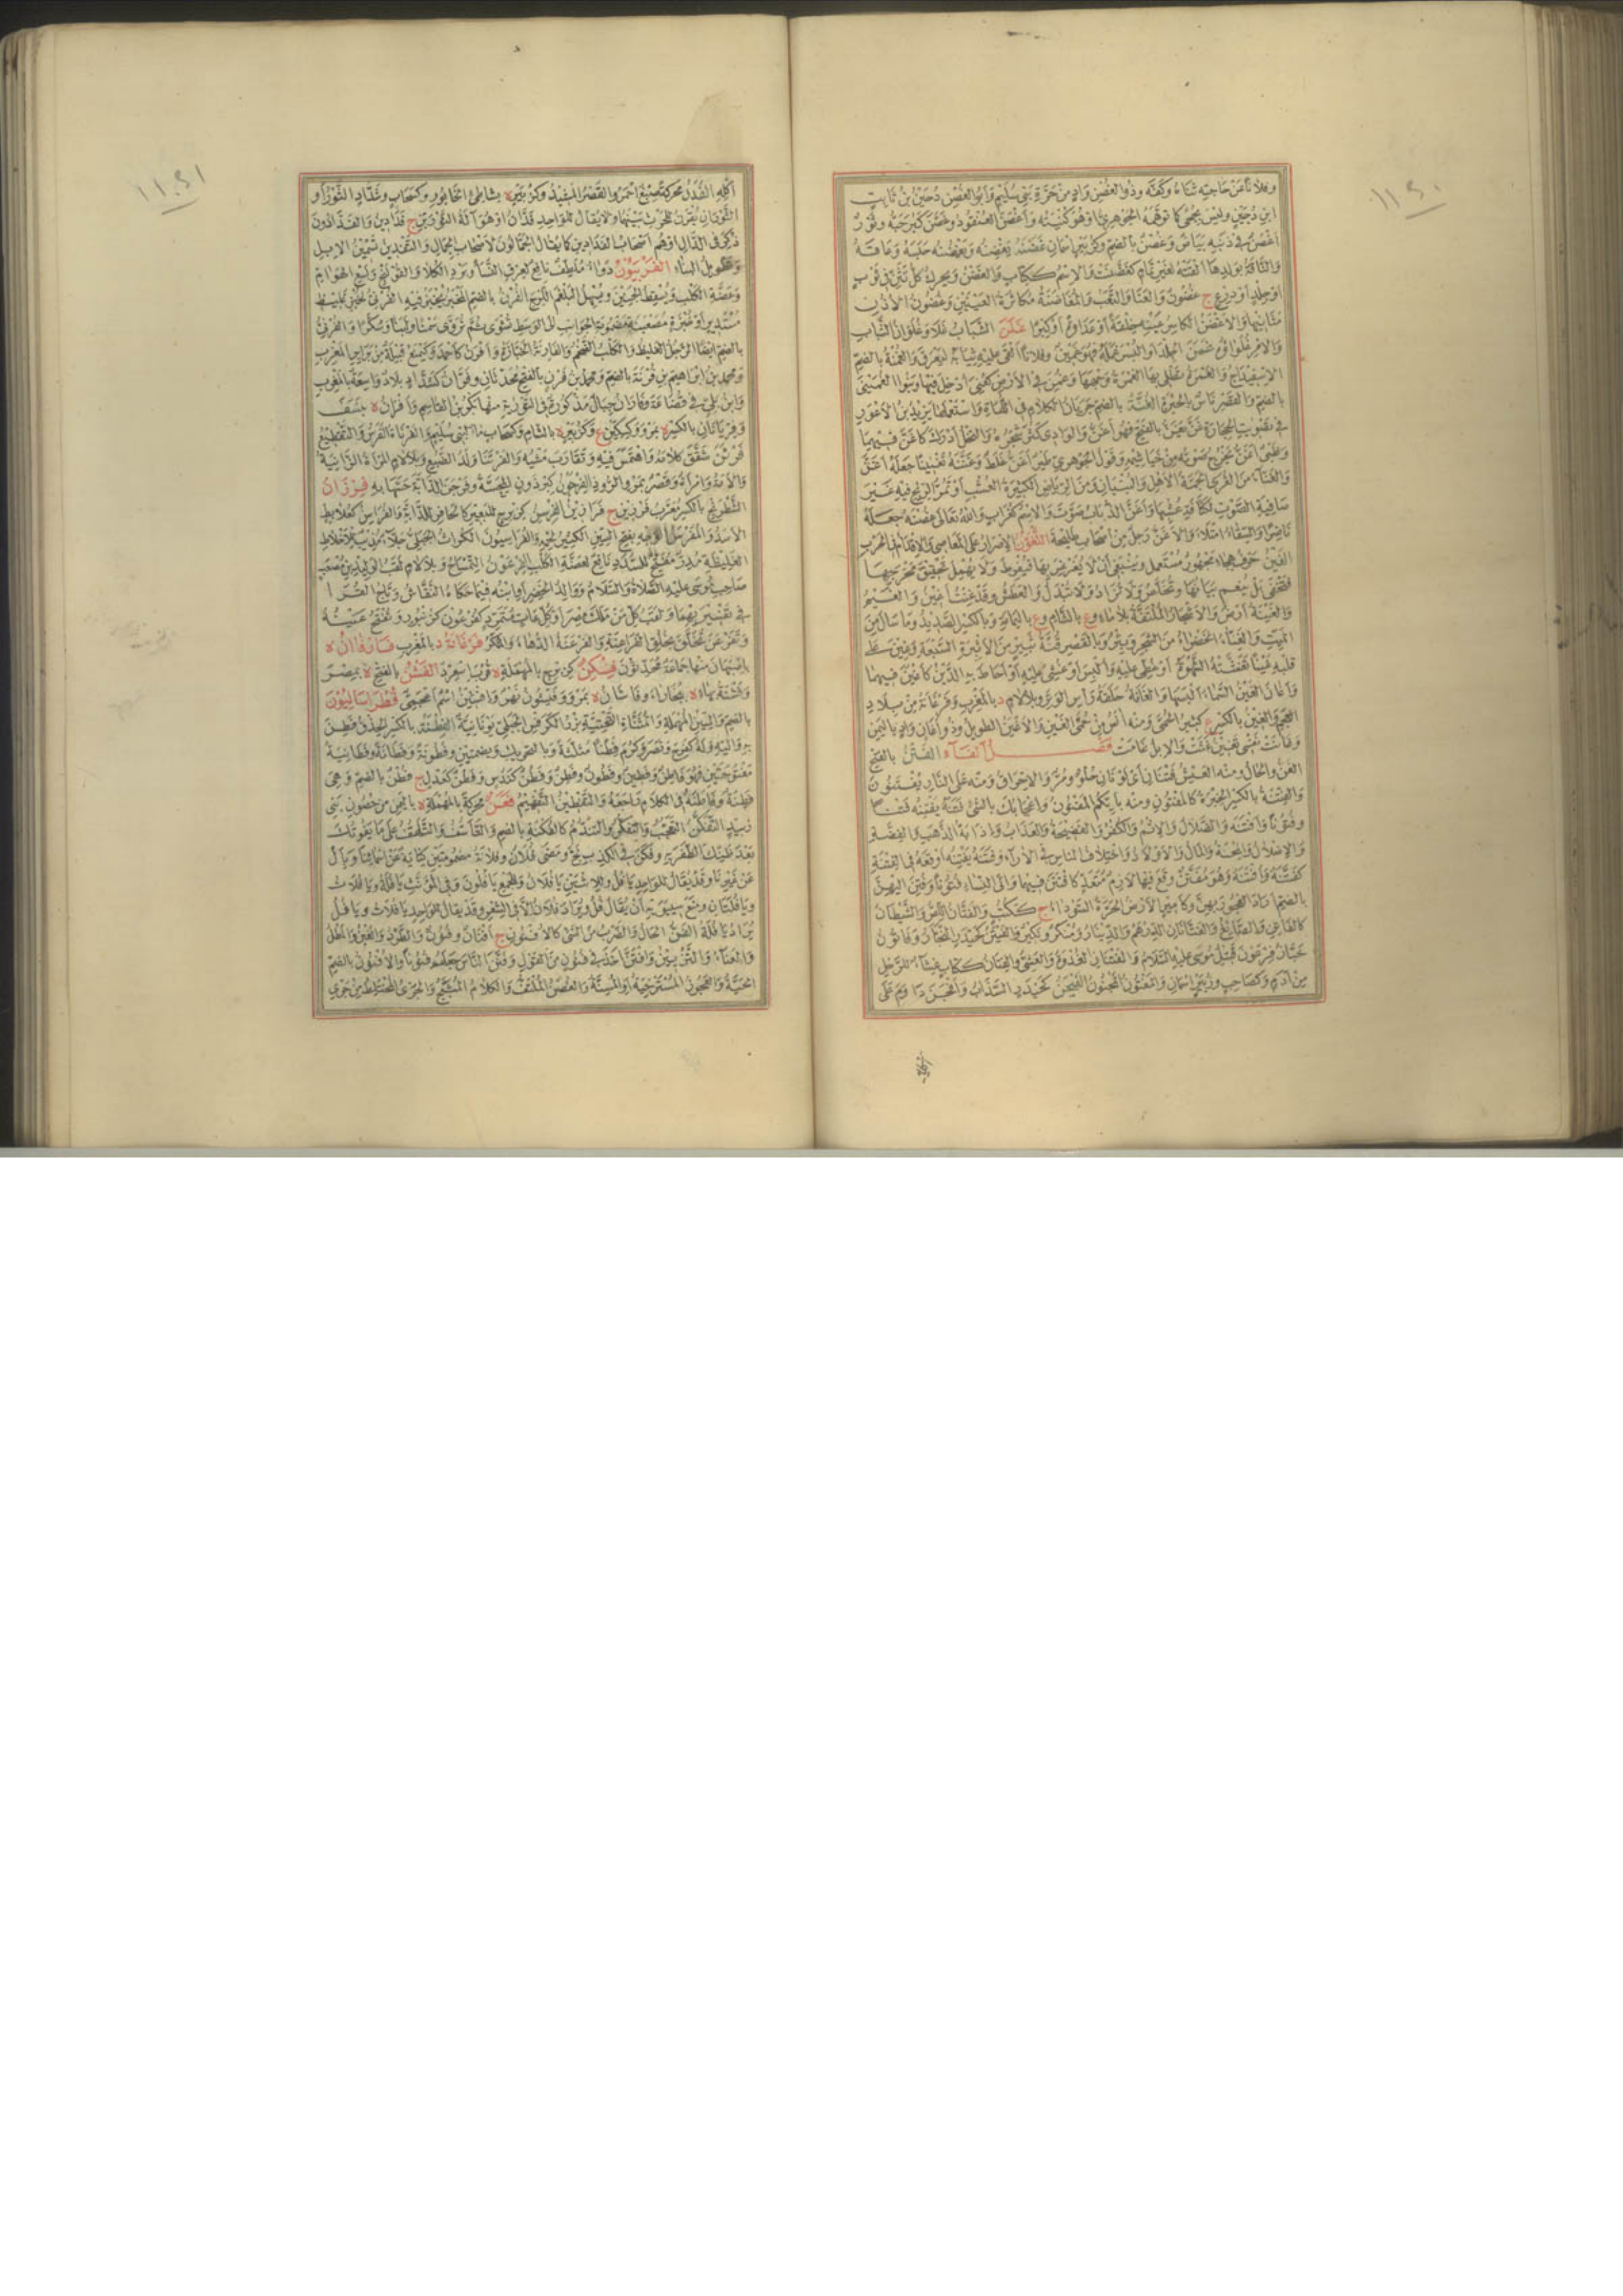 ١١٤٠
وفلانا عن حاجته ثناه وكفه وذو الغصن واد من حرة بني سليم وأبو الغصن دجين بن ثابت
ابن دجين وليس بجحى كما توهمه الجوهري او هو كنيته وأغصن العنقود وغصن كبر حبه وثور
أغصن في ذنبه بياض وغصن بالضم وكزبير اسمان غضنه يغضنه ويغضنه حبسه وعاقه
والناقة بولدها القته لغير تمام كغضنت والاسم ككتاب والغضن ويحرك كل تثن في ثوب
او جلد او درع ج غضون والعنا والتعب والمغاضنة مكاسرة العينين وغضون الاذن
مثانيها والاغضن الكاسر عينه خلقة أو عداوة أو كبرا غلن الشباب غلا وغلوان الشباب
والامر غلواؤه غمن الجلد او البسر غمله فهو غمين وفلانا ألقى عليه ثيابه ليعرق والغمنة بالضم
الاسفيداج والغمرة تطلي بها المرأة وجهها وغمن في الارض كعني ادخل فيها وبنو الغميني
بالضم والقصر ناس بالحيرة الغنة بالضم جريان الكلام في اللهاة واستعملها يزيد بن الأعور
في تصويت الحجارة غن يغن بالفتح فهو أغن والوادي كثر شجره والنخل أدرك كأغن فيهما
وظبي أغن يخرج صوته من خياشيمه وقول الجوهري طير أغن غلط وغننه تغنينا جعله أغن
والغناء من القرى الجمة الأهل والبنيان ومن الرياض الكثيرة العشب أو تمر الريح فيه غير
صافية الصوت لكثافة عشبها وأغن الذباب صوت والاسم كغراب والله تعالى غصنه جعله
ناضرا والسقاء امتلاء والأغن رجل من أصحاب طليحة التغون الاصرار على المعاصي والاقدام في الحرب
الغين حرف هجاء مجهور مستعمل وينبغي أن لا يغرغر بها فيفرط ولا يهمل تحقيق مخرجها
فتخفى بل ينعم بيانها وتخلص ولا تزاد ولا تبدل والعطش وقد غنت أغين والغيم
والغينة أرض والأشجار الملتفة بلا ماء وع بالشام وع باليمامة وبالكسر الصديد وما سال من
الميت والغيناء الخضراء من الشجر وبئر وبالقصر قنة ثبير من الأثبرة السبعة وغين على
قلبه غينا تغشته الشهوة أو غطي عليه وألبس أو غشي عليه أو أحاط به الرين كأغين فيهما
وأغان الغين السماء ألبسها والغانة حلقة رأس الوتر وبلا لام د بالمغرب وفرغانة من بلاد
العجم والغين بالكسر ع كثير الحمى ومنه آنس من حمى الغين والأغين الطويل وذو أغيان واد باليمن
وغانت نفسي تغين غثت والابل غامت فصل الفاء الفتن بالفتح
الفن والحال ومنه العيش فتنان أي لونان حلو ومر والاحراق ومنه على النار يفتنون
والفتنة بالكسر الخبرة كالمفتون ومنه بأيكم المفتون واعجابك بالشيء فتنه يفتنه فتنا
وفتونا وأفتنه والضلال والاثم والكفر والفضيحة والعذاب واذابة الذهب والفضة
والاضلال والمحنة والمال والأولاد واختلاف الناس في الآراء وفتنه يفتنه أوقعه في الفتنة
كفتنه وأفتنه وهو مفتن وقع فيها لازم متعد كافتتن فيهما والى النساء فتونا وفتن اليهن
بالضم أراد الفجور بهن وكأمير الأرض الحرة السوداء ج ككتب والفتان اللص والشيطان
كالفاتن والصائغ والفتانان الدرهم والدينار ومنكر ونكير والفيتن كحيدر النجار وفاتون
خباز فرعون قتيل موسى عليه السلام والفتنان الغدوة والعشي والفتان ككتاب غشاء للرحل
من أدم وكصاحب وزبير اسمان والمفتون المجنون الفيجن كحيدر السذاب وأفجن داوم على
١١٤١
أكله الفدن محركة صبغ احمر والقصر المشيد وكزبير ه بشاطئ الخابور وكسحاب وشداد الثور أو
الثوران يقرن للحرث بينهما ولا يقال للواحد فدان او هو آلة الثورين ج فدادين والفدادون
ذكر في الدال اوهم أصحاب الفدادين كما يقال الجمالون لأصحاب الجمال والتفدين تسمين الابل
وتطويل البناء الفربيون دواء ملطف نافع لعرق النسا وبرد الكلا والقولنج ولسع الهوام
وعضة الكلب ويسقط الجنين ويسهل البلغم اللزج الفرن بالضم المخبز يخبز فيه الفرني لخبز غليظ
مستدير أو خبزة مصعنبة مضمومة الجوانب الى الوسط تشوى ثم تروى سمنا ولبنا وسكرا والفرني
بالضم ايضا الرجل الغليظ والكلب الضخم والفارنة الخبازة وأفرن كأحمد وكيمنع قبيلة من برابر المغرب
ومحمد بن ابراهيم بن فرنة بالضم ومحمد بن فرن بالفتح محدثان وفران كشداد بلاد واسعة بالمغرب
وابن بلي في قضاعة وفاران جبال مذكورة في التوراة منها بكر بن القاسم وأفران ه بنسف
وفريانان بالكسر ه بمرو وكسكين ع وكزبير ه بالشام وكسحاب ماء لبني سليم والفرناة الفرش والتقطيع
فرتن شقق كلامه واهتمش فيه وتقارب مشيه والفرتنا ولد الضبع وبلا لام المرأة الزانية
والامة وامرأة وقصر بمرو الروذ الفرجون كبرذون المحسة وفرجن الدابة حسها به فرزان
الشطرنج بالكسر معرب فرزين ج فرازين الفرسن كزبرج للبعير كالحافر للدابة والفراسن كعلابط
الأسد والمفرسن الوجه بفتح السين الكثير لحمه والفراسيون الكراث الجبلي جلاء مذيب للأخلاط
الغليظة مدر مفتح للسدد نافع لعضة الكلب الفرعون التمساح وبلا لام لقب الوليد بن مصعب
صاحب موسى عليه الصلاة والسلام ووالد الخضر أو ابنه فيما حكاه النقاش وتاج القراء
في تفسيريهما ولقب كل من ملك مصر أو كل عات متمرد كفرعون كزنبور وتفتح عينه
وتفرعن تخلق بخلق الفراعنة والفرعنة الدهاء والنكر فرغانة د بالمغرب فارفاآن ه
باصبهان منها جماعة محدثون فسكن كزبرج بالمهملة ه قرب اسعرد الفشن بالفتح ه بمصر
وفشنة بهاء ه ببخارا وفاشان ه بمرو وفيشون نهر وافشين اسم أعجمي فطراساليون
بالضم والسين المهملة والمثناة التحتية بزر الكرفس الجبلي يونانية الفطنة بالكسر الحذق فطن
به واليه وله كفرح ونصر وكرم فطنا مثلثة وبالتحريك وبضمتين وفطونة وفطانة وفطانية
مفتوحتين فهو فاطن وفطين وفطون وفطن وفطن كندس وفطن كعدل ج فطن بالضم وهي
فطنة وفاطنه في الكلام راجعه والتفطين التفهيم فعن محركة بالمهملة ه باليمن من حصون بني
زبيد التفكن التعجب والتفكر والتندم كالفكنة بالضم والتأسف والتلهف على ما يفوتك
بعد ظنك الظفر به وفكن في الكذب لج ومضى فلان وفلانة مضمومتين كناية عن اسمائنا وبأل
عن غيرنا وقد يقال للواحد يا فل وللاثنين يا فلان وللجمع يا فلون وفي المؤنث يا فلة ويا فلات
ويا فلتان ومنع سيبويه أن يقال فل ويراد فلان الا في الشعر وقد يقال للواحد يا فلات ويا فل
يراد يا فلة الفن الحال والضرب من الشيء كالأفنون ج أفنان وفنون والطرد والغبن والمطل
والعناء والتزيين وافتن أخذ في فنون من القول وفنن الناس جعلهم فنونا والافنون بالضم
الحية والعجوز المسترخية أو المسنة والغصن الملتف والكلام المثبج والجري المختلط من جري